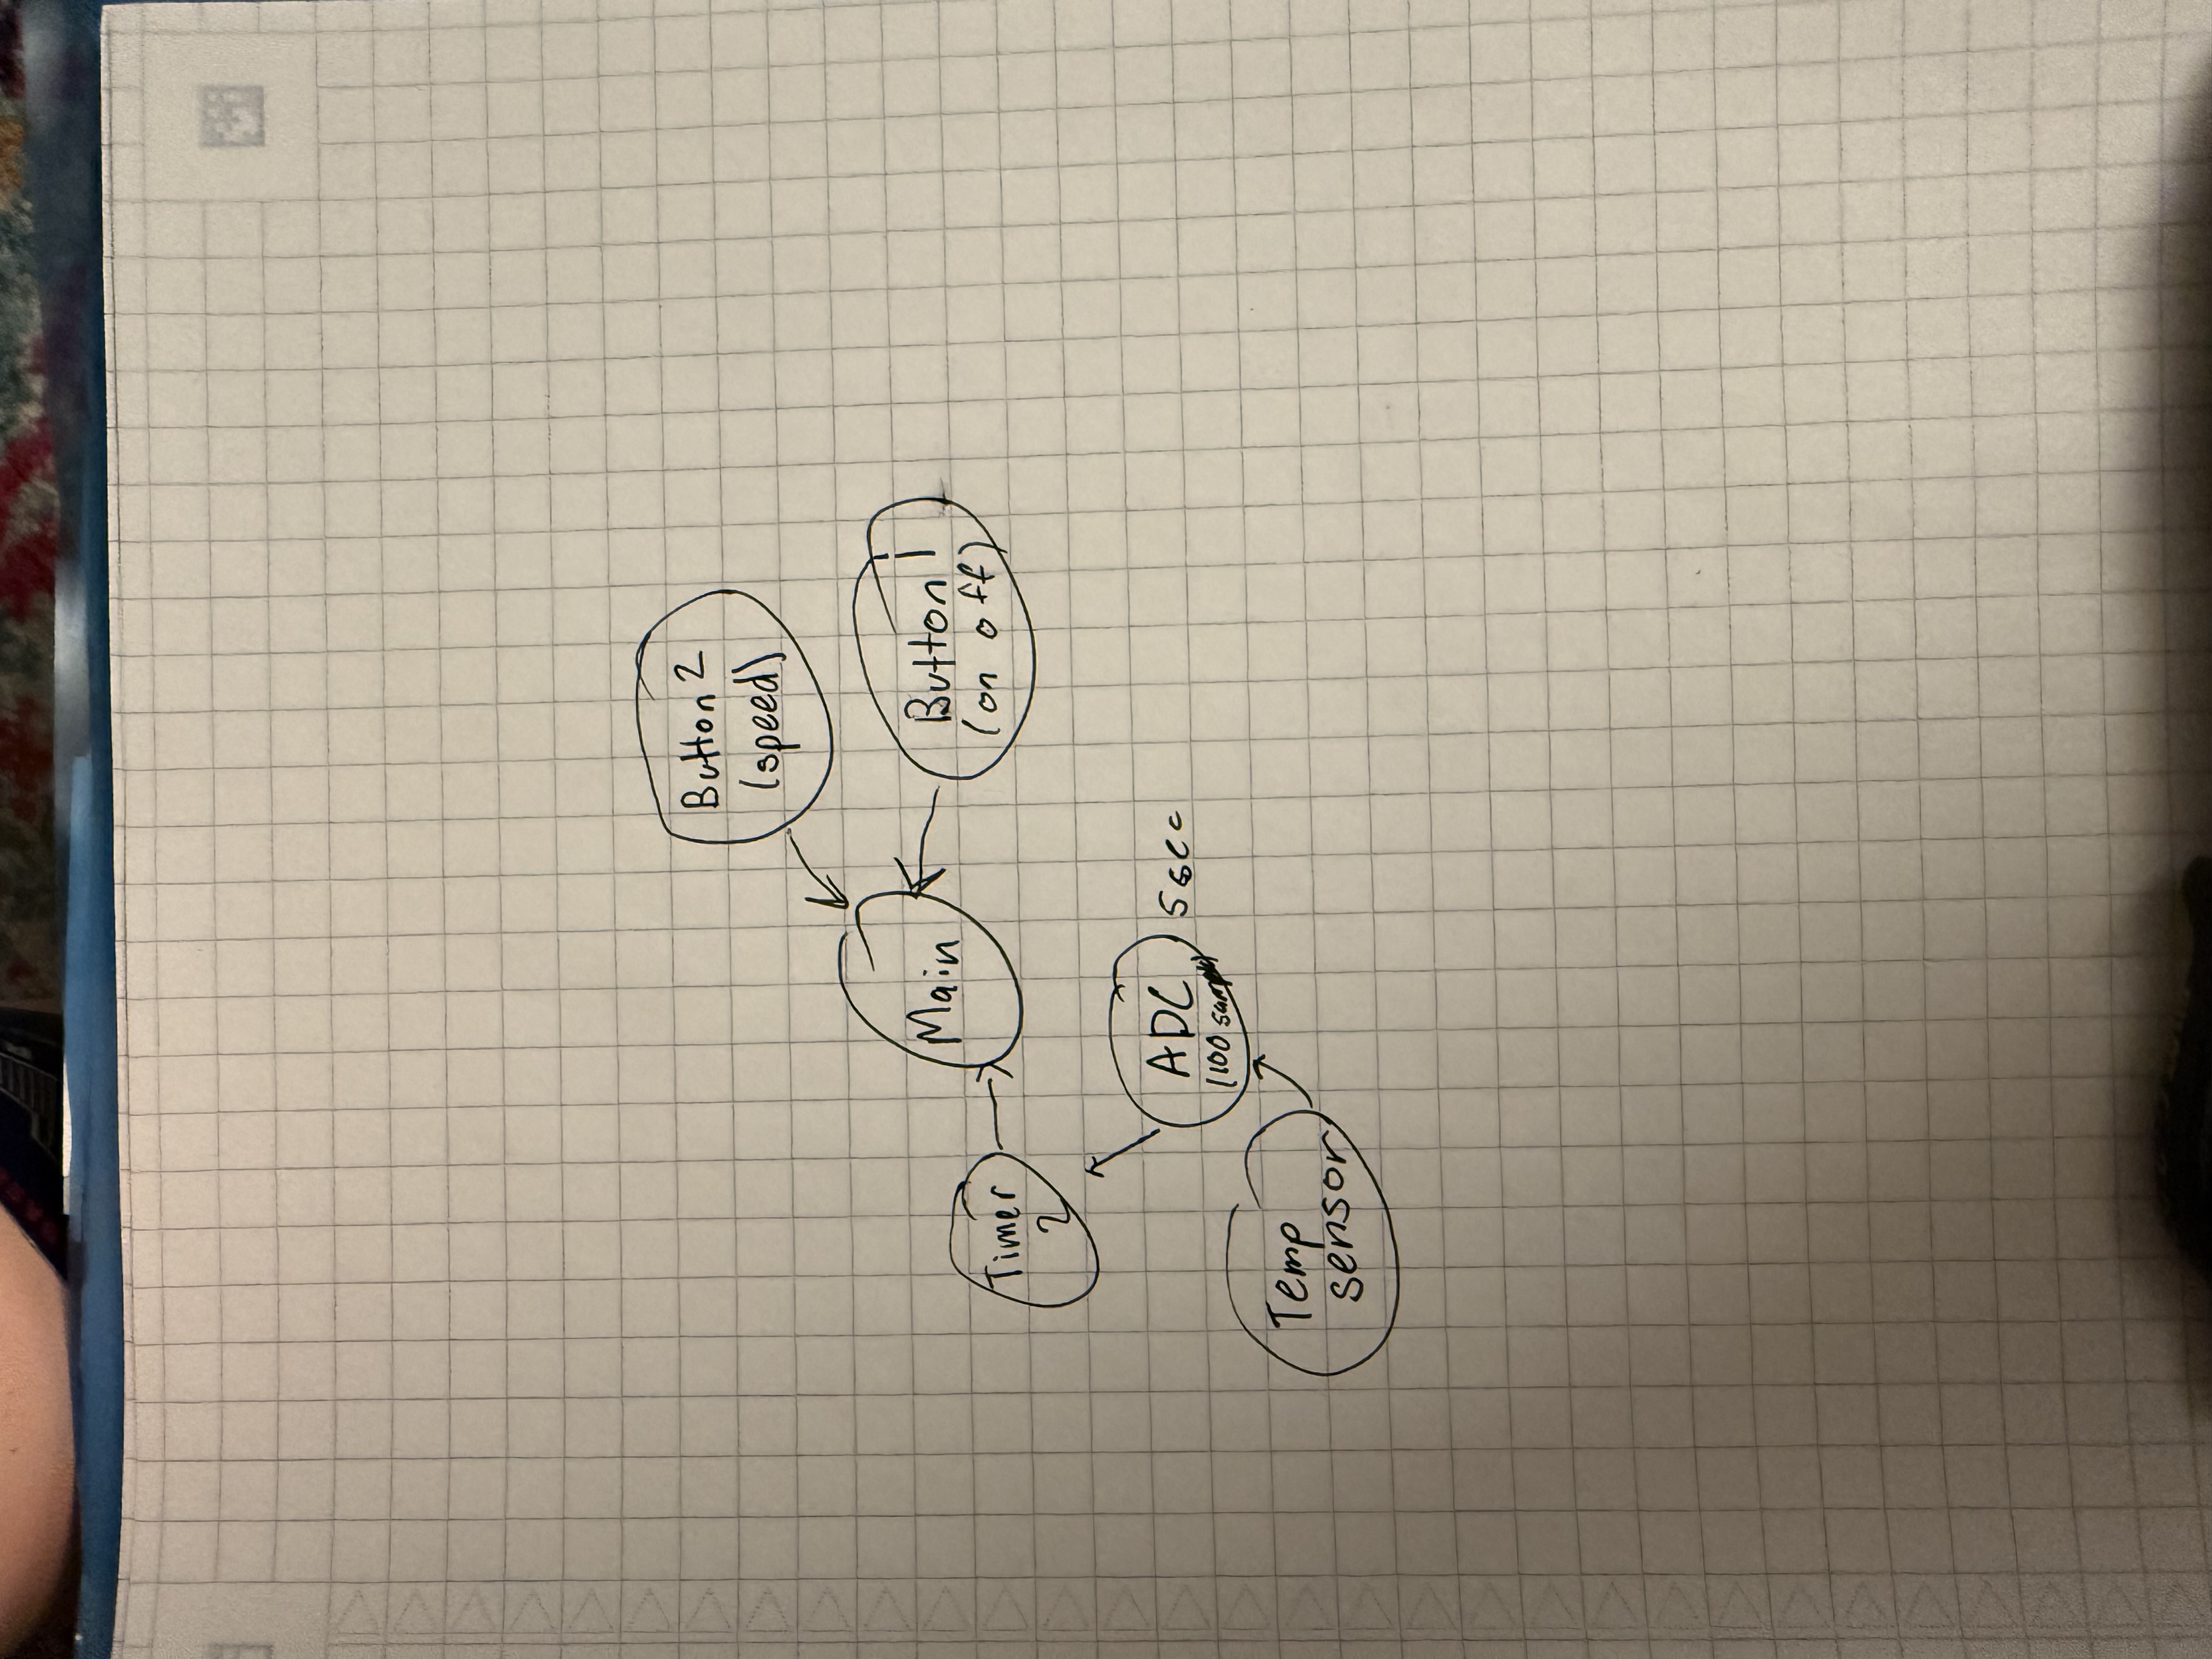 Button 2
(speed)
Main
Button 1
(on off)
Timer
2
ADC
(100
5 sec
Temp
sensor